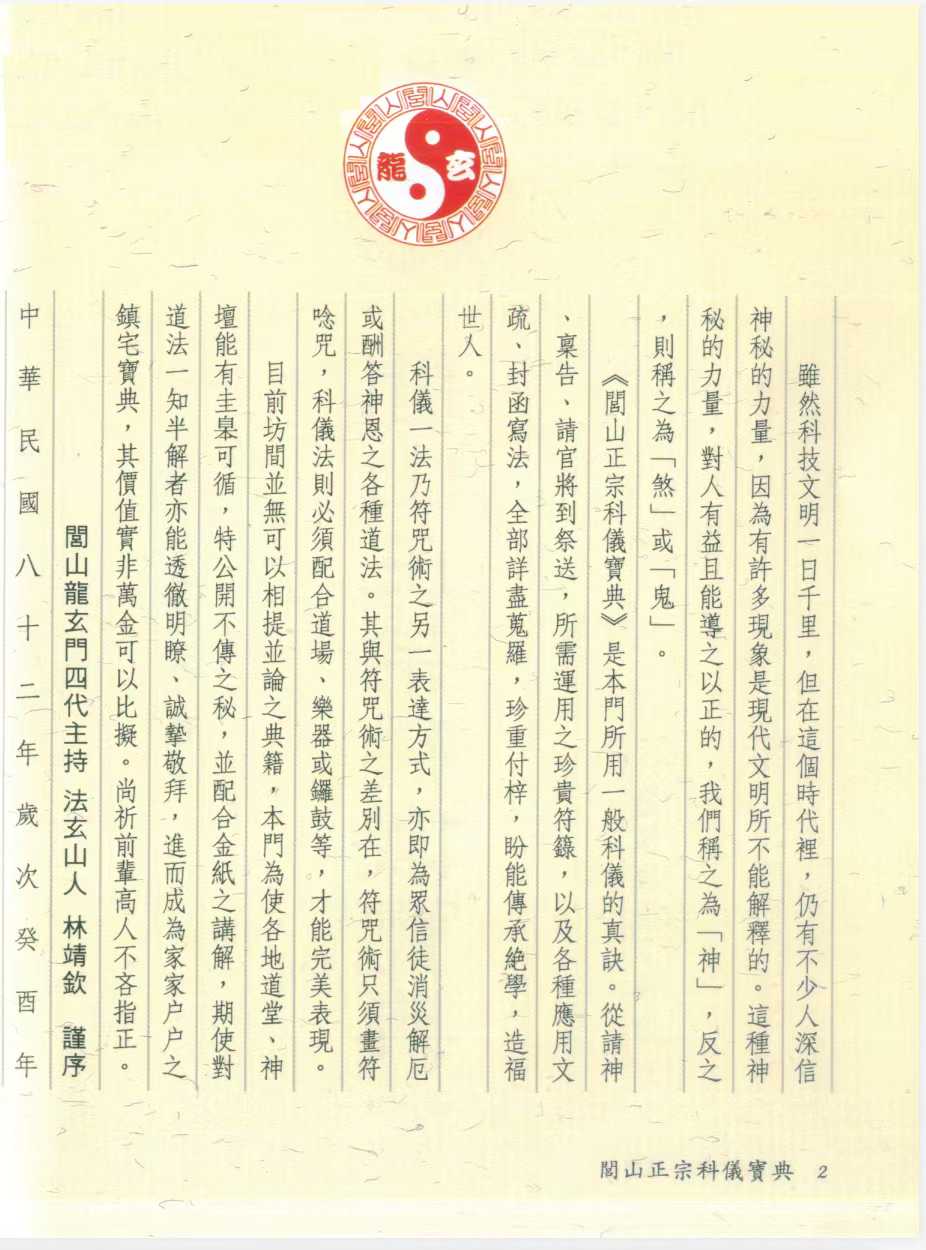 龍 玄
雖然科技文明一日千里，但在這個時代裡，仍有不少人深信
神秘的力量，因為有許多現象是現代文明所不能解釋的。這種神
秘的力量，對人有益且能導之以正的，我們稱之為「神」，反之
，則稱之為「煞」或「鬼」。
《閭山正宗科儀寶典》是本門所用一般科儀的真訣。從請神
、稟告、請官將到祭送，所需運用之珍貴符籙，以及各種應用文
疏、封函寫法，全部詳盡蒐羅，珍重付梓，盼能傳承絶學，造福
世人。
科儀一法乃符咒術之另一表達方式，亦即為眾信徒消災解厄
或酬答神恩之各種道法。其與符咒術之差別在，符咒術只須畫符
唸咒，科儀法則必須配合道場、樂器或鑼鼓等，才能完美表現。
目前坊間並無可以相提並論之典籍，本門為使各地道堂、神
壇能有圭臬可循，特公開不傳之秘，並配合金紙之講解，期使對
道法一知半解者亦能透徹明瞭、誠摯敬拜，進而成為家家户户之
鎮宅寶典，其價值實非萬金可以比擬。尚祈前輩高人不吝指正。
閭山龍玄門四代主持 法玄山人 林靖欽 謹序
中華民國八十二年歲次癸酉年
閭山正宗科儀寶典 2